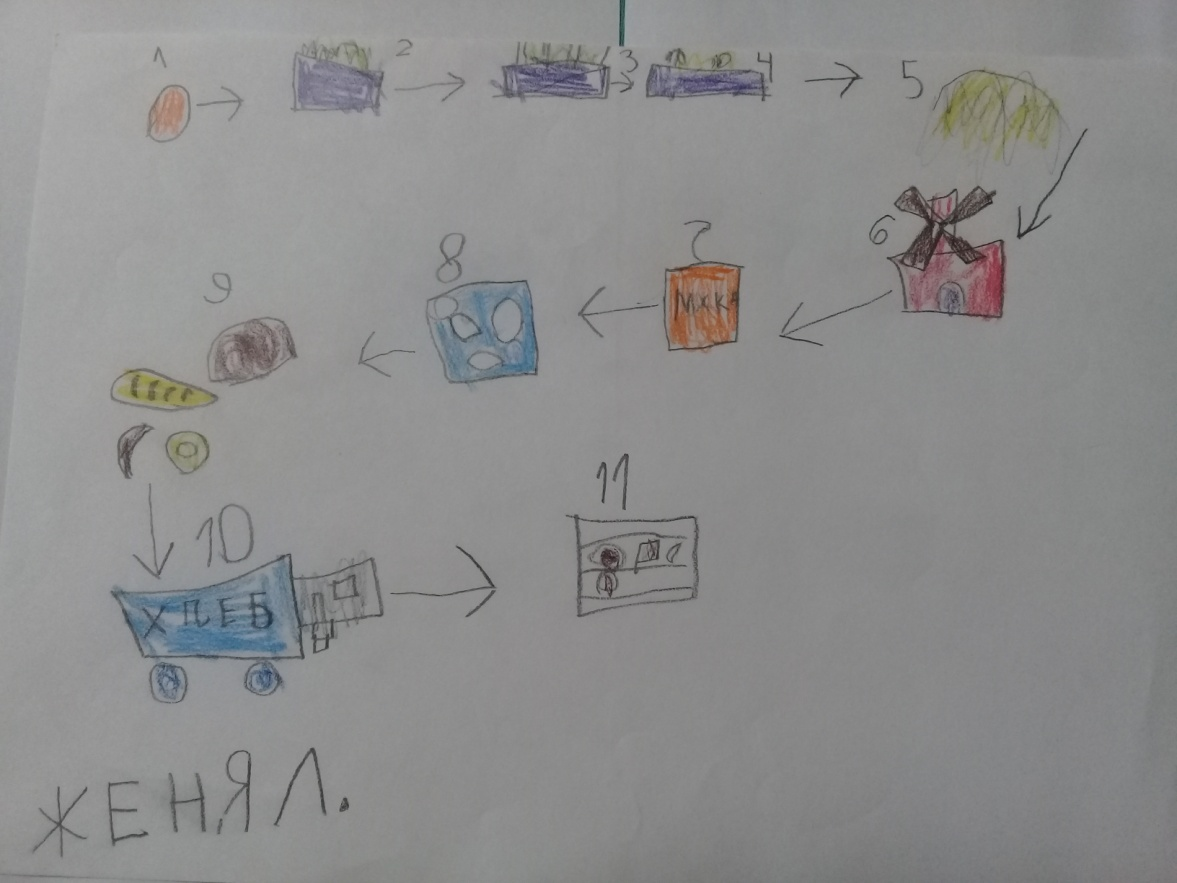 1 2 3 4 5
6
7
МУКА
8
9
10
ХЛЕБ
11
ЖЕНЯ Л.